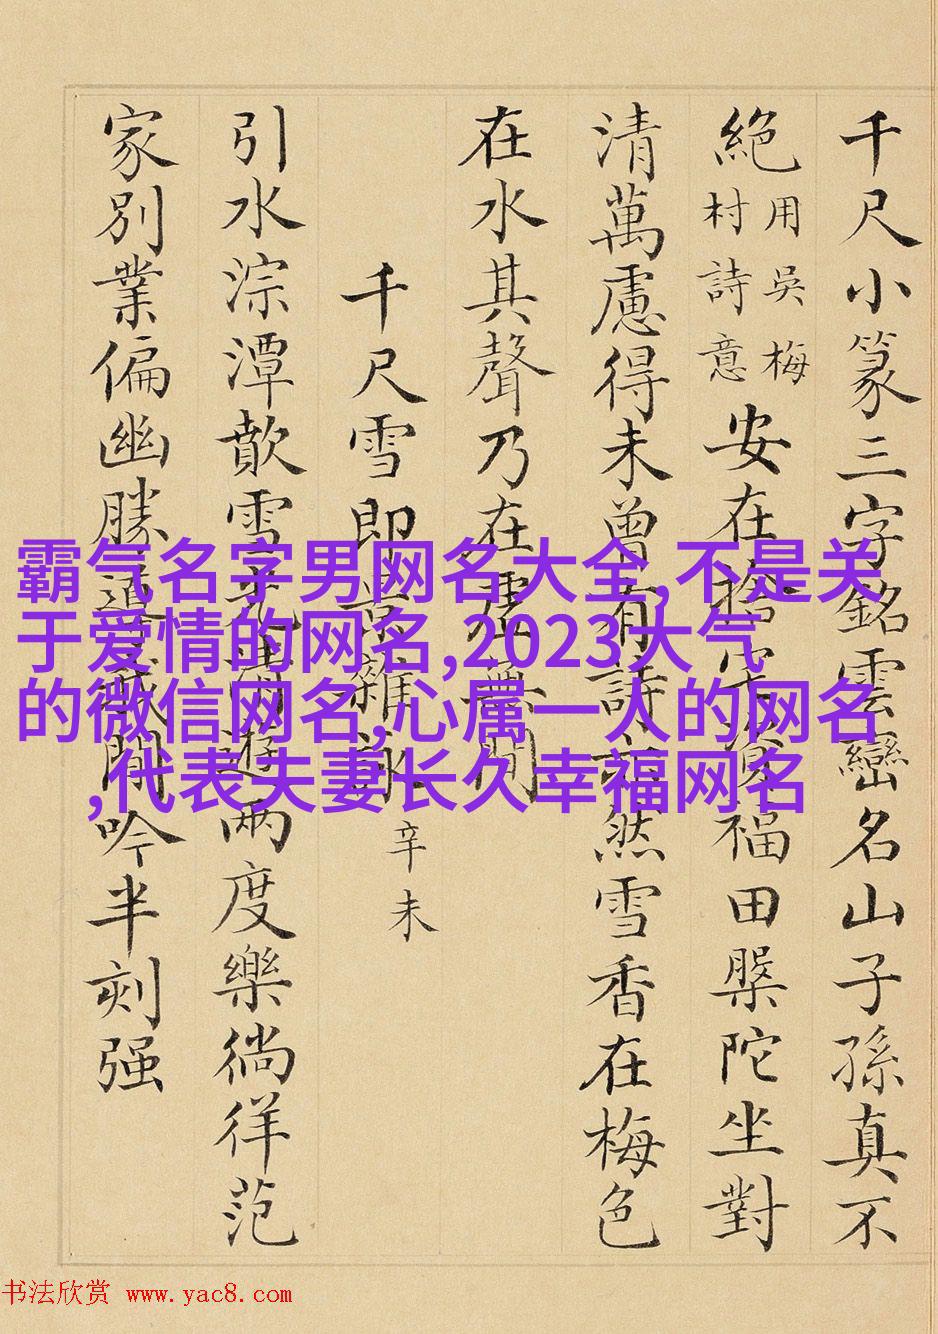 千尺小篆三字銘雲巒名山子孫真不
絕用吳梅村詩意安在捨宅資福田槃陀坐對
清萬慮得未曾有詩亦然雪香在梅色
在水其聲乃在虛無間
千尺雪即景雜詠辛未
引水淙潭歕雪光遊兩度樂徜徉范
家別業偏幽勝適我閒吟半刻强
霸气名字男网名大全,不是关
于爱情的网名,2023大气
的微信网名,心属一人的网名
,代表夫妻长久幸福网名
书法欣赏 www.yac8.com